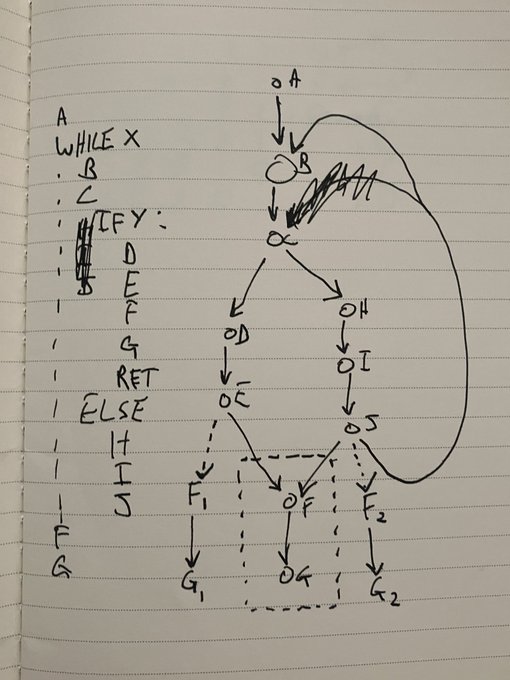 A
WHILE X
B
C
IF Y:
D
E
F
G
RET
ELSE
H
I
J
F
G
A
B
C
D
H
E
I
J
F1
F
F2
G1
G
G2